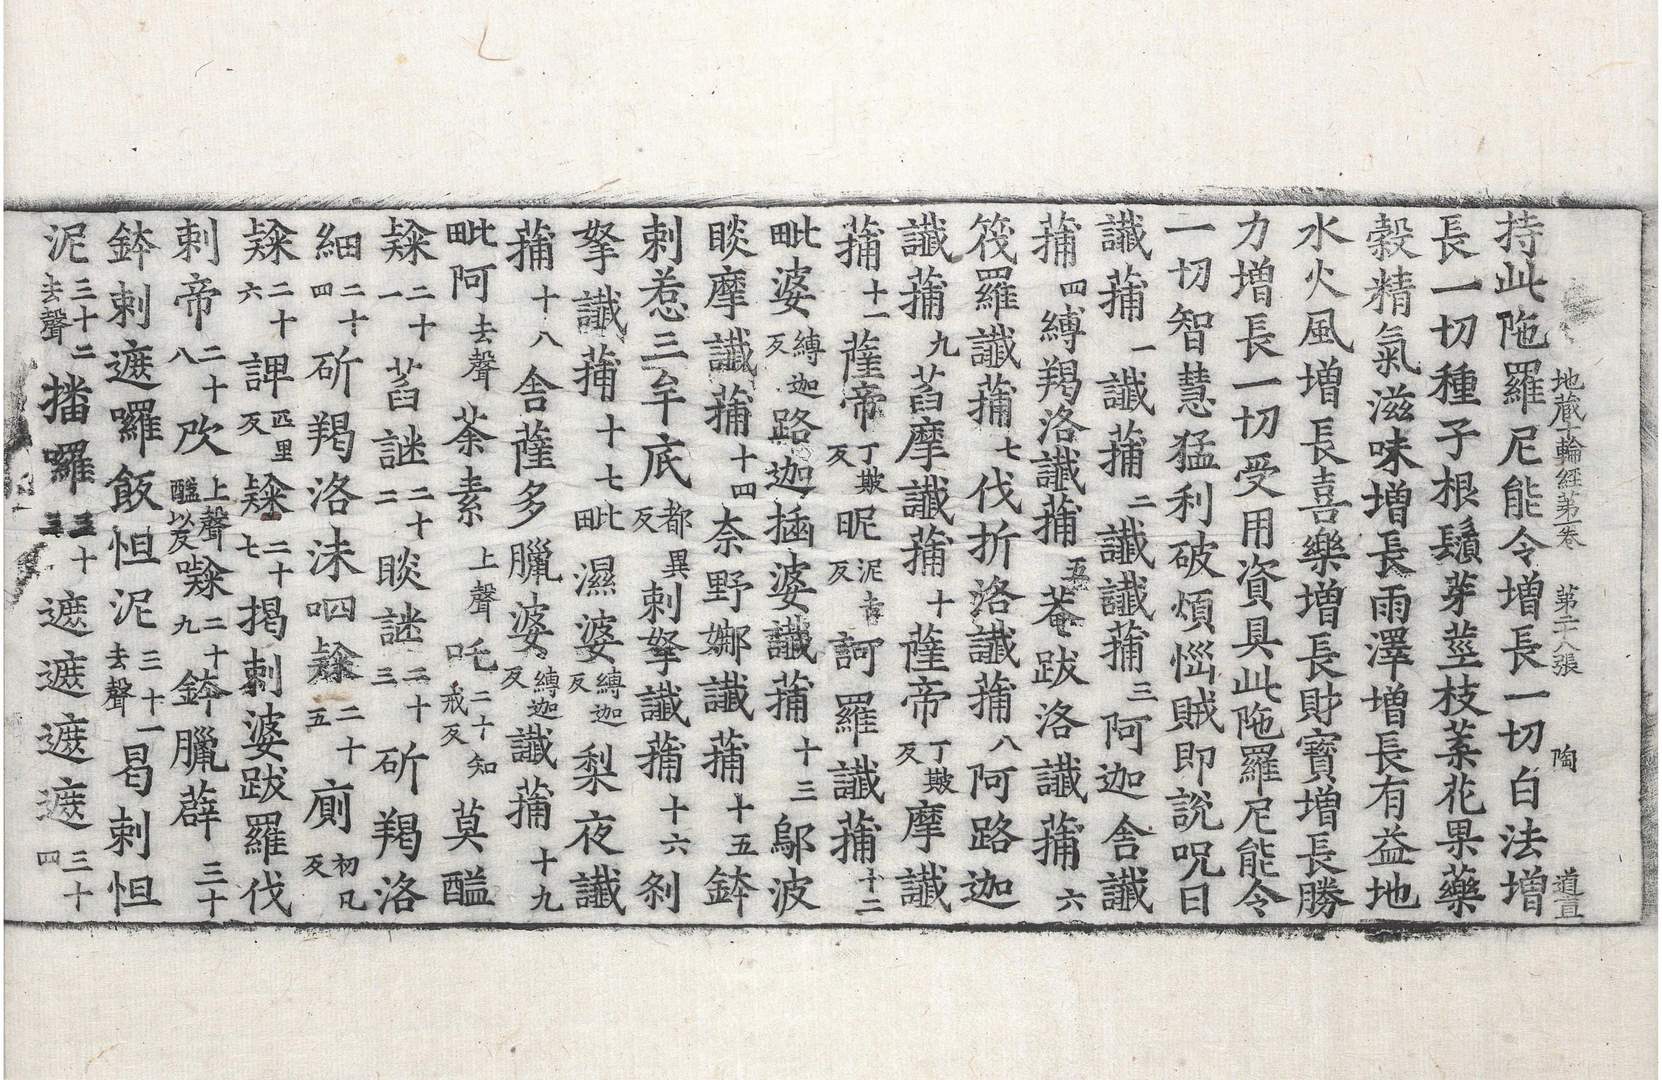 地藏十輪經第一卷 第二十八張 陶 道置
持此陁羅尼能令增長一切白法增
長一切種子根鬚芽莖枝葉花果藥
穀精氣滋味增長雨澤增長有益地
水火風增長喜樂增長財寶增長勝
力增長一切受用資具此陁羅尼能令
一切智慧猛利破煩惱賊即說呪曰
讖蒱一讖蒱二讖讖蒱三阿迦舍讖
蒱四縛羯洛讖蒱五菴跋洛讖蒱六
筏羅讖蒱七伐折洛讖蒱八阿路迦
讖蒱九萏摩讖蒱十薩帝丁䫂反摩讖
蒱十一薩帝丁䫂反昵泥吉反訶羅讖蒱十二
毗婆縛迦反路迦插婆讖蒱十三鄔波
睒摩讖蒱十四奈野娜讖蒱十五鉢
剌惹三牟底都異反剌拏讖蒱十六剎
拏讖蒱十七毗濕婆縛迦反梨夜讖
蒱十八舍薩多臘婆縛迦反讖蒱十九
毗阿去聲荼素上聲吒二十知戒反莫醯
𥻘二十一萏謎二十二睒謎二十三斫羯洛
細二十四斫羯洛沬呬𥻘二十五廁初凡反
𥻘二十六諀匹里反𥻘二十七揭剌婆跋羅伐
剌帝二十八㰤上聲醯以反𥻘二十九鉢臘薜三十
鉢剌遮囉飯怛泥三十一去聲曷剌怛
泥三十二去聲播囉三十三遮遮遮遮三十四